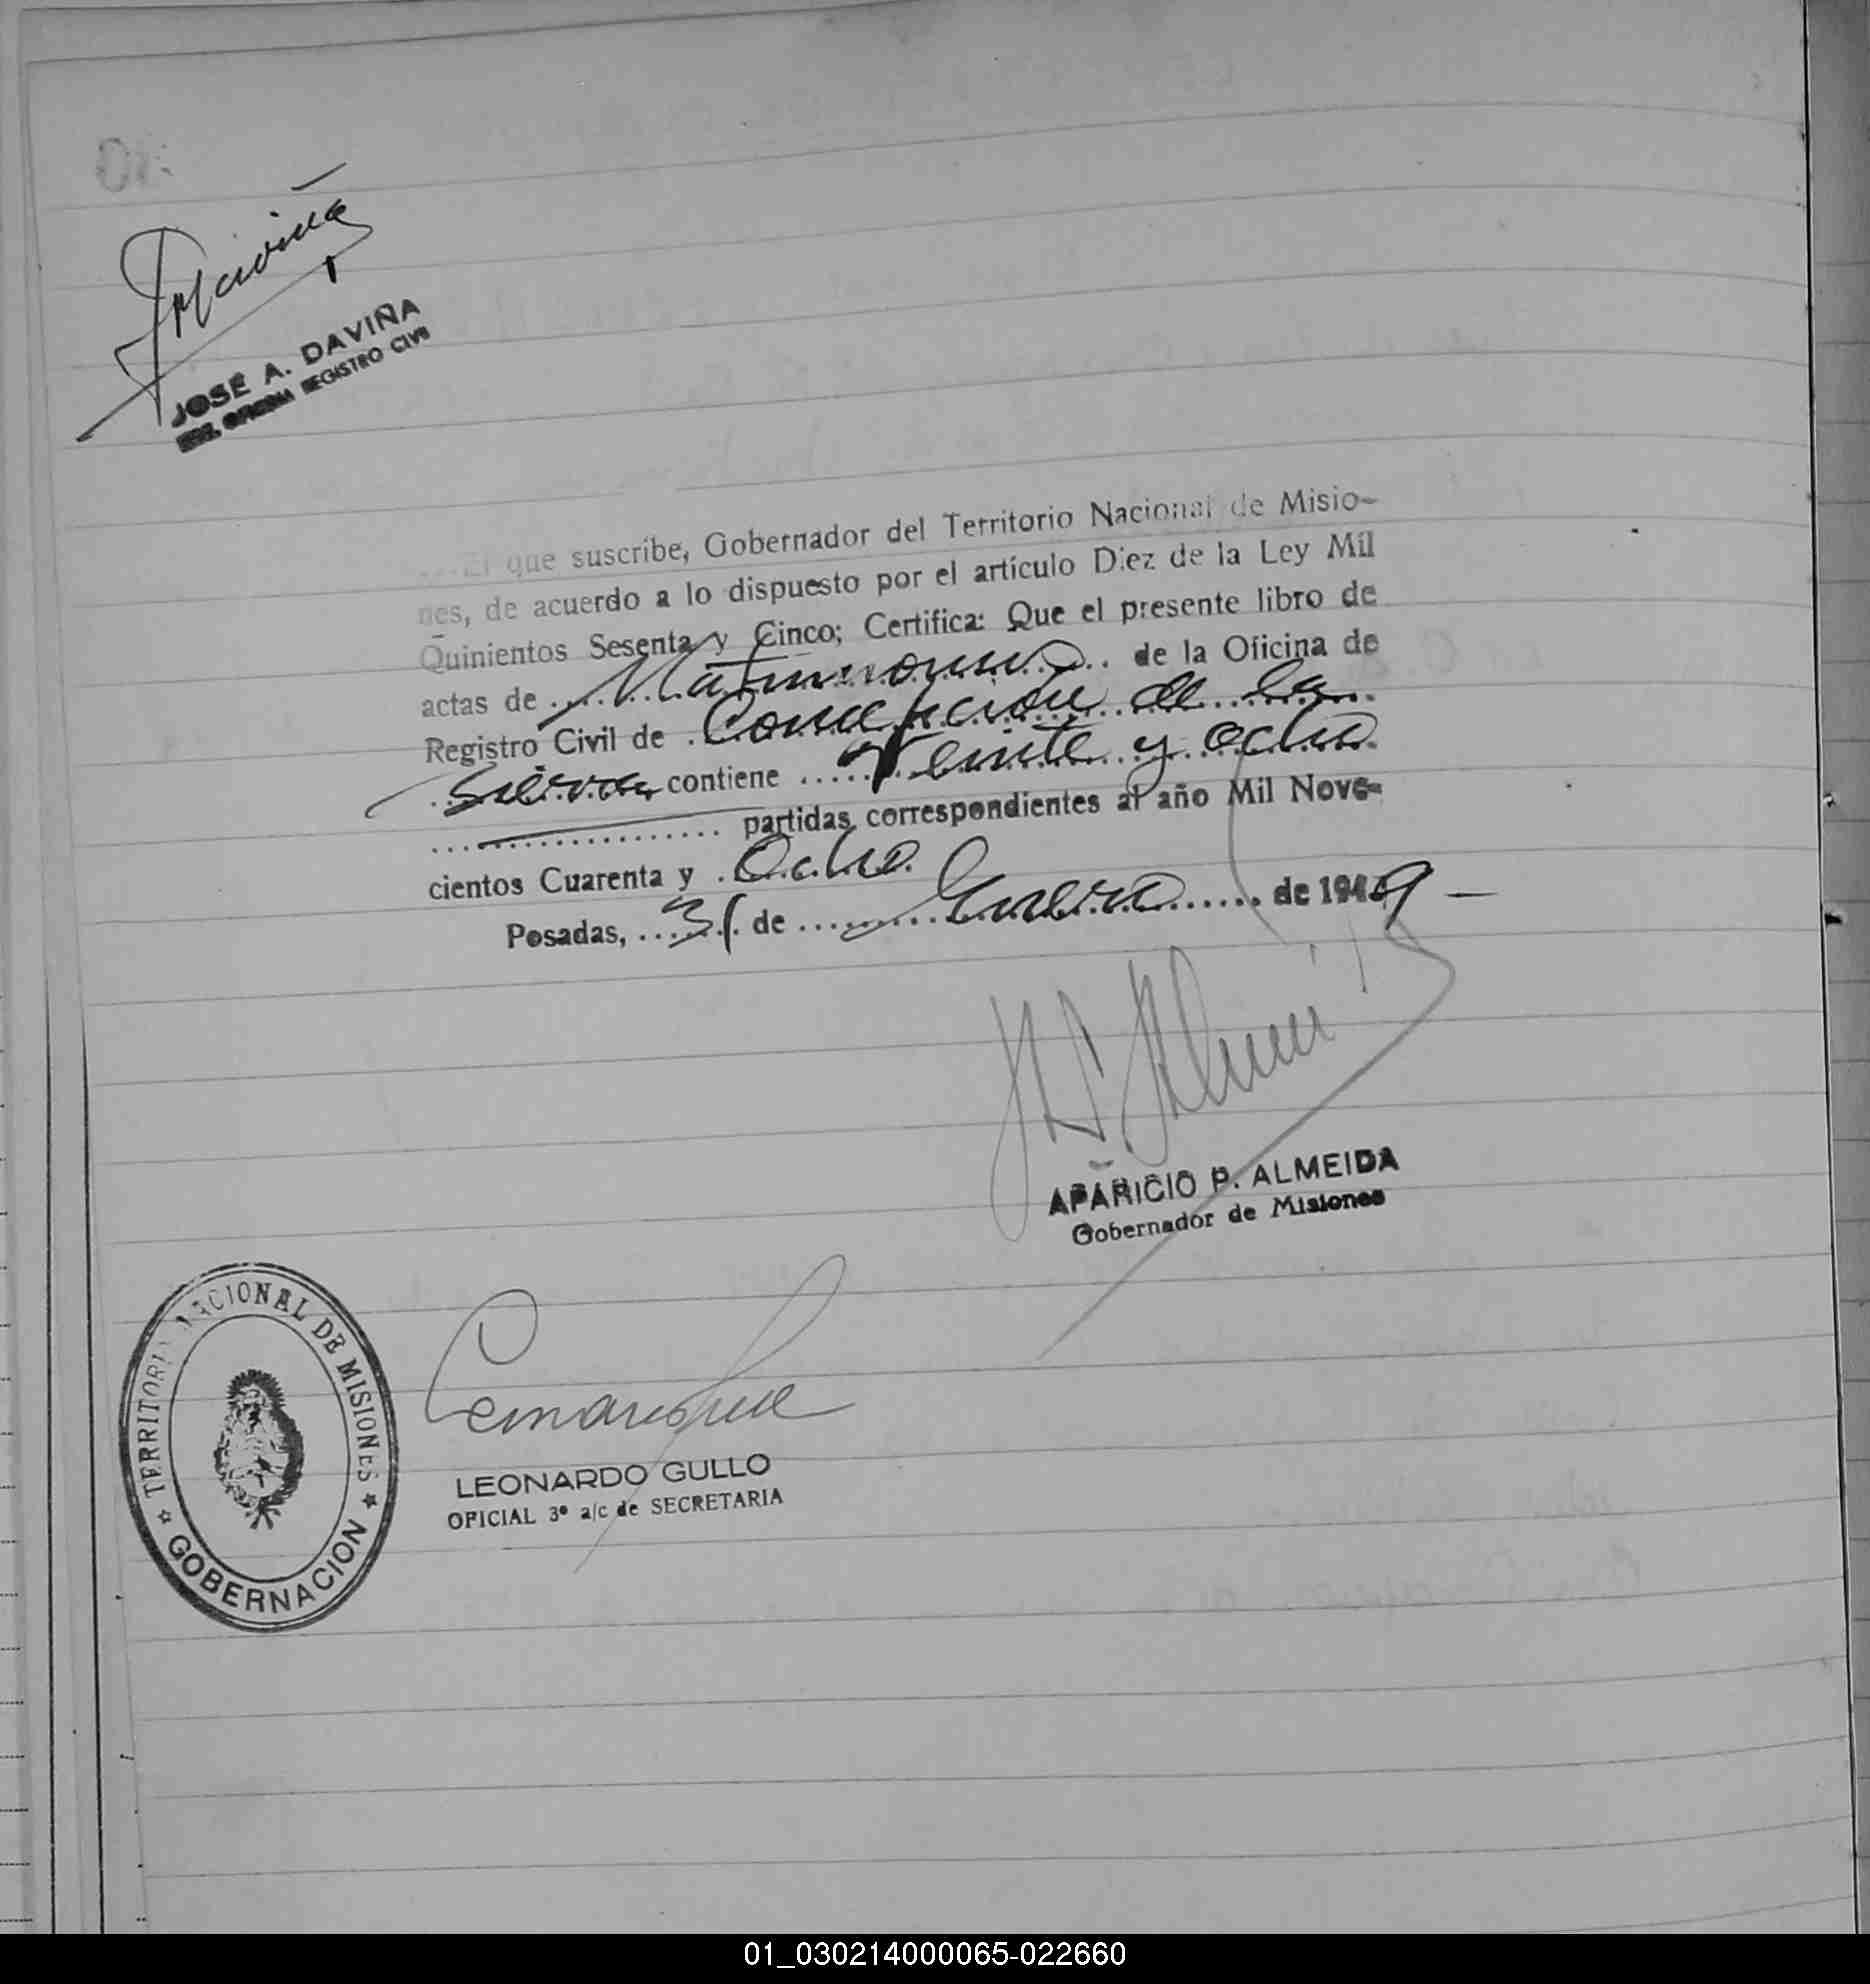 JOSÉ A. DAVIÑA
OFICINA REGISTRO CIVIL
El que suscribe, Gobernador del Territorio Nacional de Misio-
nes, de acuerdo a lo dispuesto por el artículo Diez de la Ley Mil
Quinientos Sesenta y Cinco; Certifica: Que el presente libro de
actas de Matrimonios de la Oficina de
Registro Civil de Concepción de la
Sierra contiene Veinte y ocho
partidas correspondientes al año Mil Nove-
cientos Cuarenta y Ocho
Posadas, 31 de Enero de 1949 -
APARICIO P. ALMEIDA
Gobernador de Misiones
TERRITORIO NACIONAL DE MISIONES
GOBERNACION
LEONARDO GULLO
OFICIAL 3º a/c de SECRETARIA
01_030214000065-022660